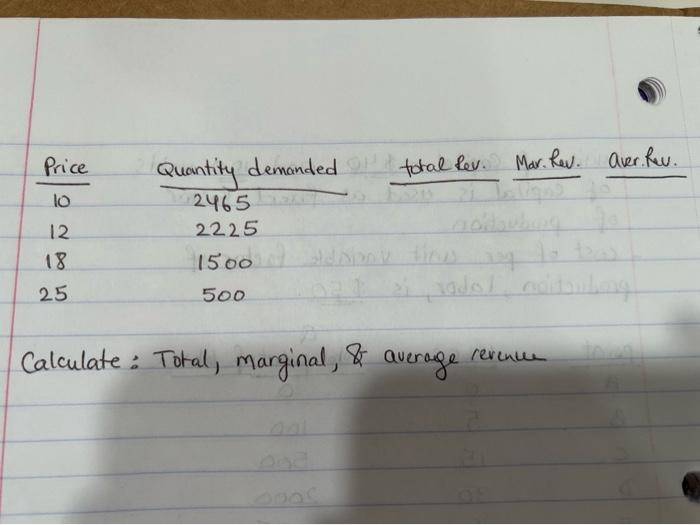 Price Quantity demanded total Rev. Mar. Rev. Aver. Rev.
10 2465
12 2225
18 1500
25 500
Calculate: Total, marginal, & average revenue